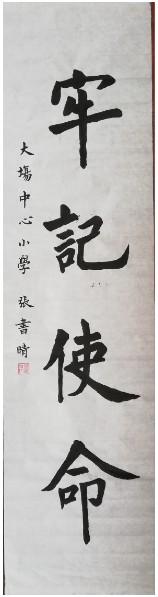 牢記使命
大場中心小學 張書晴